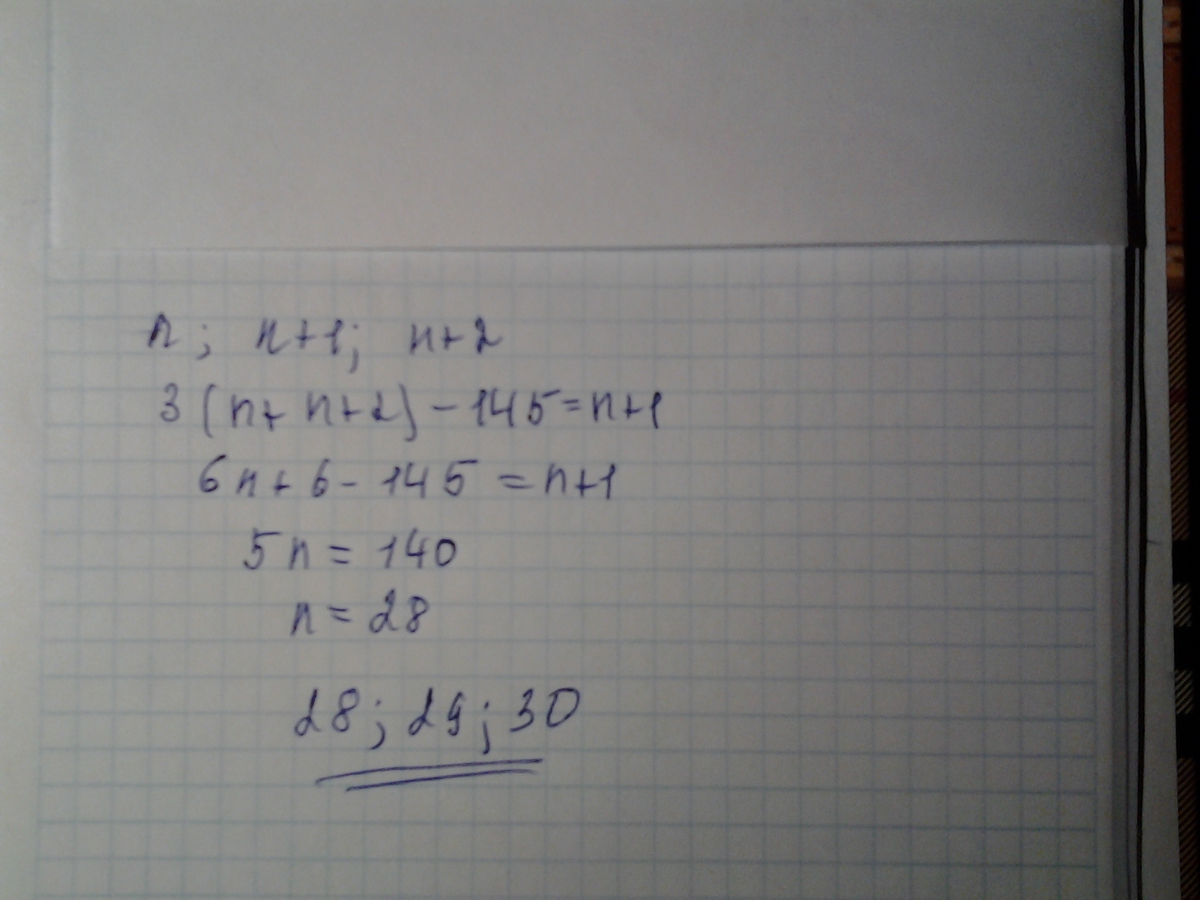 n; n+1; n+2
3(n+n+2)-145=n+1
6n+6-145=n+1
5n=140
n=28
28; 29; 30